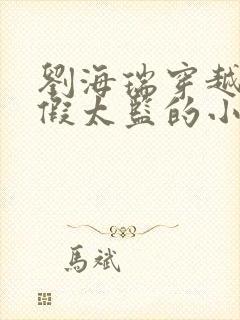 劉海瑞穿越
假太監的小
馬斌